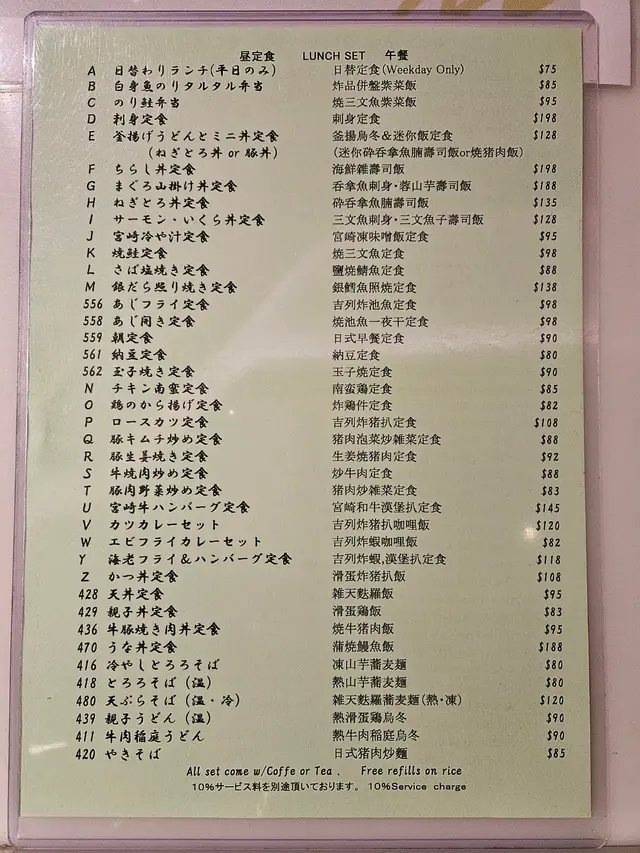 昼定食 LUNCH SET 午餐
A 日替わりランチ(平日のみ) 日替定食(Weekday Only) $75
B 白身魚のりタルタル弁当 炸品併盤紫菜飯 $85
C のり鮭弁当 焼三文魚紫菜飯 $95
D 刺身定食 刺身定食 $198
E 釜揚げうどんとミニ丼定食 釜揚烏冬&迷你飯定食 $128
(ねぎとろ丼 or 豚丼) (迷你砕呑拿魚腩壽司飯or焼猪肉飯)
F ちらし丼定食 海鮮雑壽司飯 $198
G まぐろ山掛け丼定食 呑拿魚刺身·蓉山芋壽司飯 $188
H ねぎとろ丼定食 砕呑拿魚腩壽司飯 $135
I サーモン・いくら丼定食 三文魚刺身·三文魚子壽司飯 $128
J 宮崎冷や汁定食 宮崎凍味噌飯定食 $95
K 焼鮭定食 焼三文魚定食 $98
L さば塩焼き定食 鹽焼鯖魚定食 $88
M 銀だら照り焼き定食 銀鱈魚照焼定食 $138
556 あじフライ定食 吉列炸池魚定食 $98
558 あじ開き定食 焼池魚一夜干定食 $98
559 朝定食 日式早餐定食 $90
561 納豆定食 納豆定食 $80
562 玉子焼き定食 玉子焼定食 $90
N チキン南蛮定食 南蛮鶏定食 $85
O 鶏のから揚げ定食 炸鶏件定食 $82
P ロースカツ定食 吉列炸猪扒定食 $108
Q 豚キムチ炒め定食 猪肉泡菜炒雑菜定食 $88
R 豚生姜焼き定食 生姜焼猪肉定食 $92
S 牛焼肉炒め定食 炒牛肉定食 $88
T 豚肉野菜炒め定食 猪肉炒雑菜定食 $83
U 宮崎牛ハンバーグ定食 宮崎和牛漢堡扒定食 $145
V カツカレーセット 吉列炸猪扒咖哩飯 $120
W エビフライカレーセット 吉列炸蝦咖哩飯 $82
Y 海老フライ&ハンバーグ定食 吉列炸蝦,漢堡扒定食 $118
Z かつ丼定食 滑蛋炸猪扒飯 $108
428 天丼定食 雑天麩羅飯 $95
429 親子丼定食 滑蛋鶏飯 $83
436 牛豚焼き肉丼定食 焼牛猪肉飯 $95
470 うな丼定食 蒲焼鰻魚飯 $188
416 冷やしとろろそば 凍山芋蕎麦麺 $80
418 とろろそば (温) 熱山芋蕎麦麺 $80
480 天ぷらそば (温・冷) 雑天麩羅蕎麦麺(熱·凍) $120
439 親子うどん (温) 熱滑蛋鶏烏冬 $90
411 牛肉稲庭うどん 熱牛肉稲庭烏冬 $90
420 やきそば 日式猪肉炒麺 $85
All set come w/Coffe or Tea 、 Free refills on rice
10%サービス料を別途頂いております。 10%Service charge